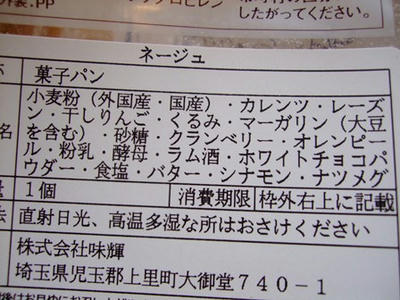 外装:PP
したがってください。
ネージュ
菓子パン
小麦粉（外国産・国産）・カレンツ・レーズ
ン・干しりんご・くるみ・マーガリン（大豆
名
を含む）・砂糖・クランベリー・オレンピー
ル・粉乳・酵母・ラム酒・ホワイトチョコパ
ウダー・食塩・バター・シナモン・ナツメグ
量 1個 消費期限 枠外右上に記載
直射日光、高温多湿な所はおさけください
株式会社味輝
埼玉県児玉郡上里町大御堂740-1